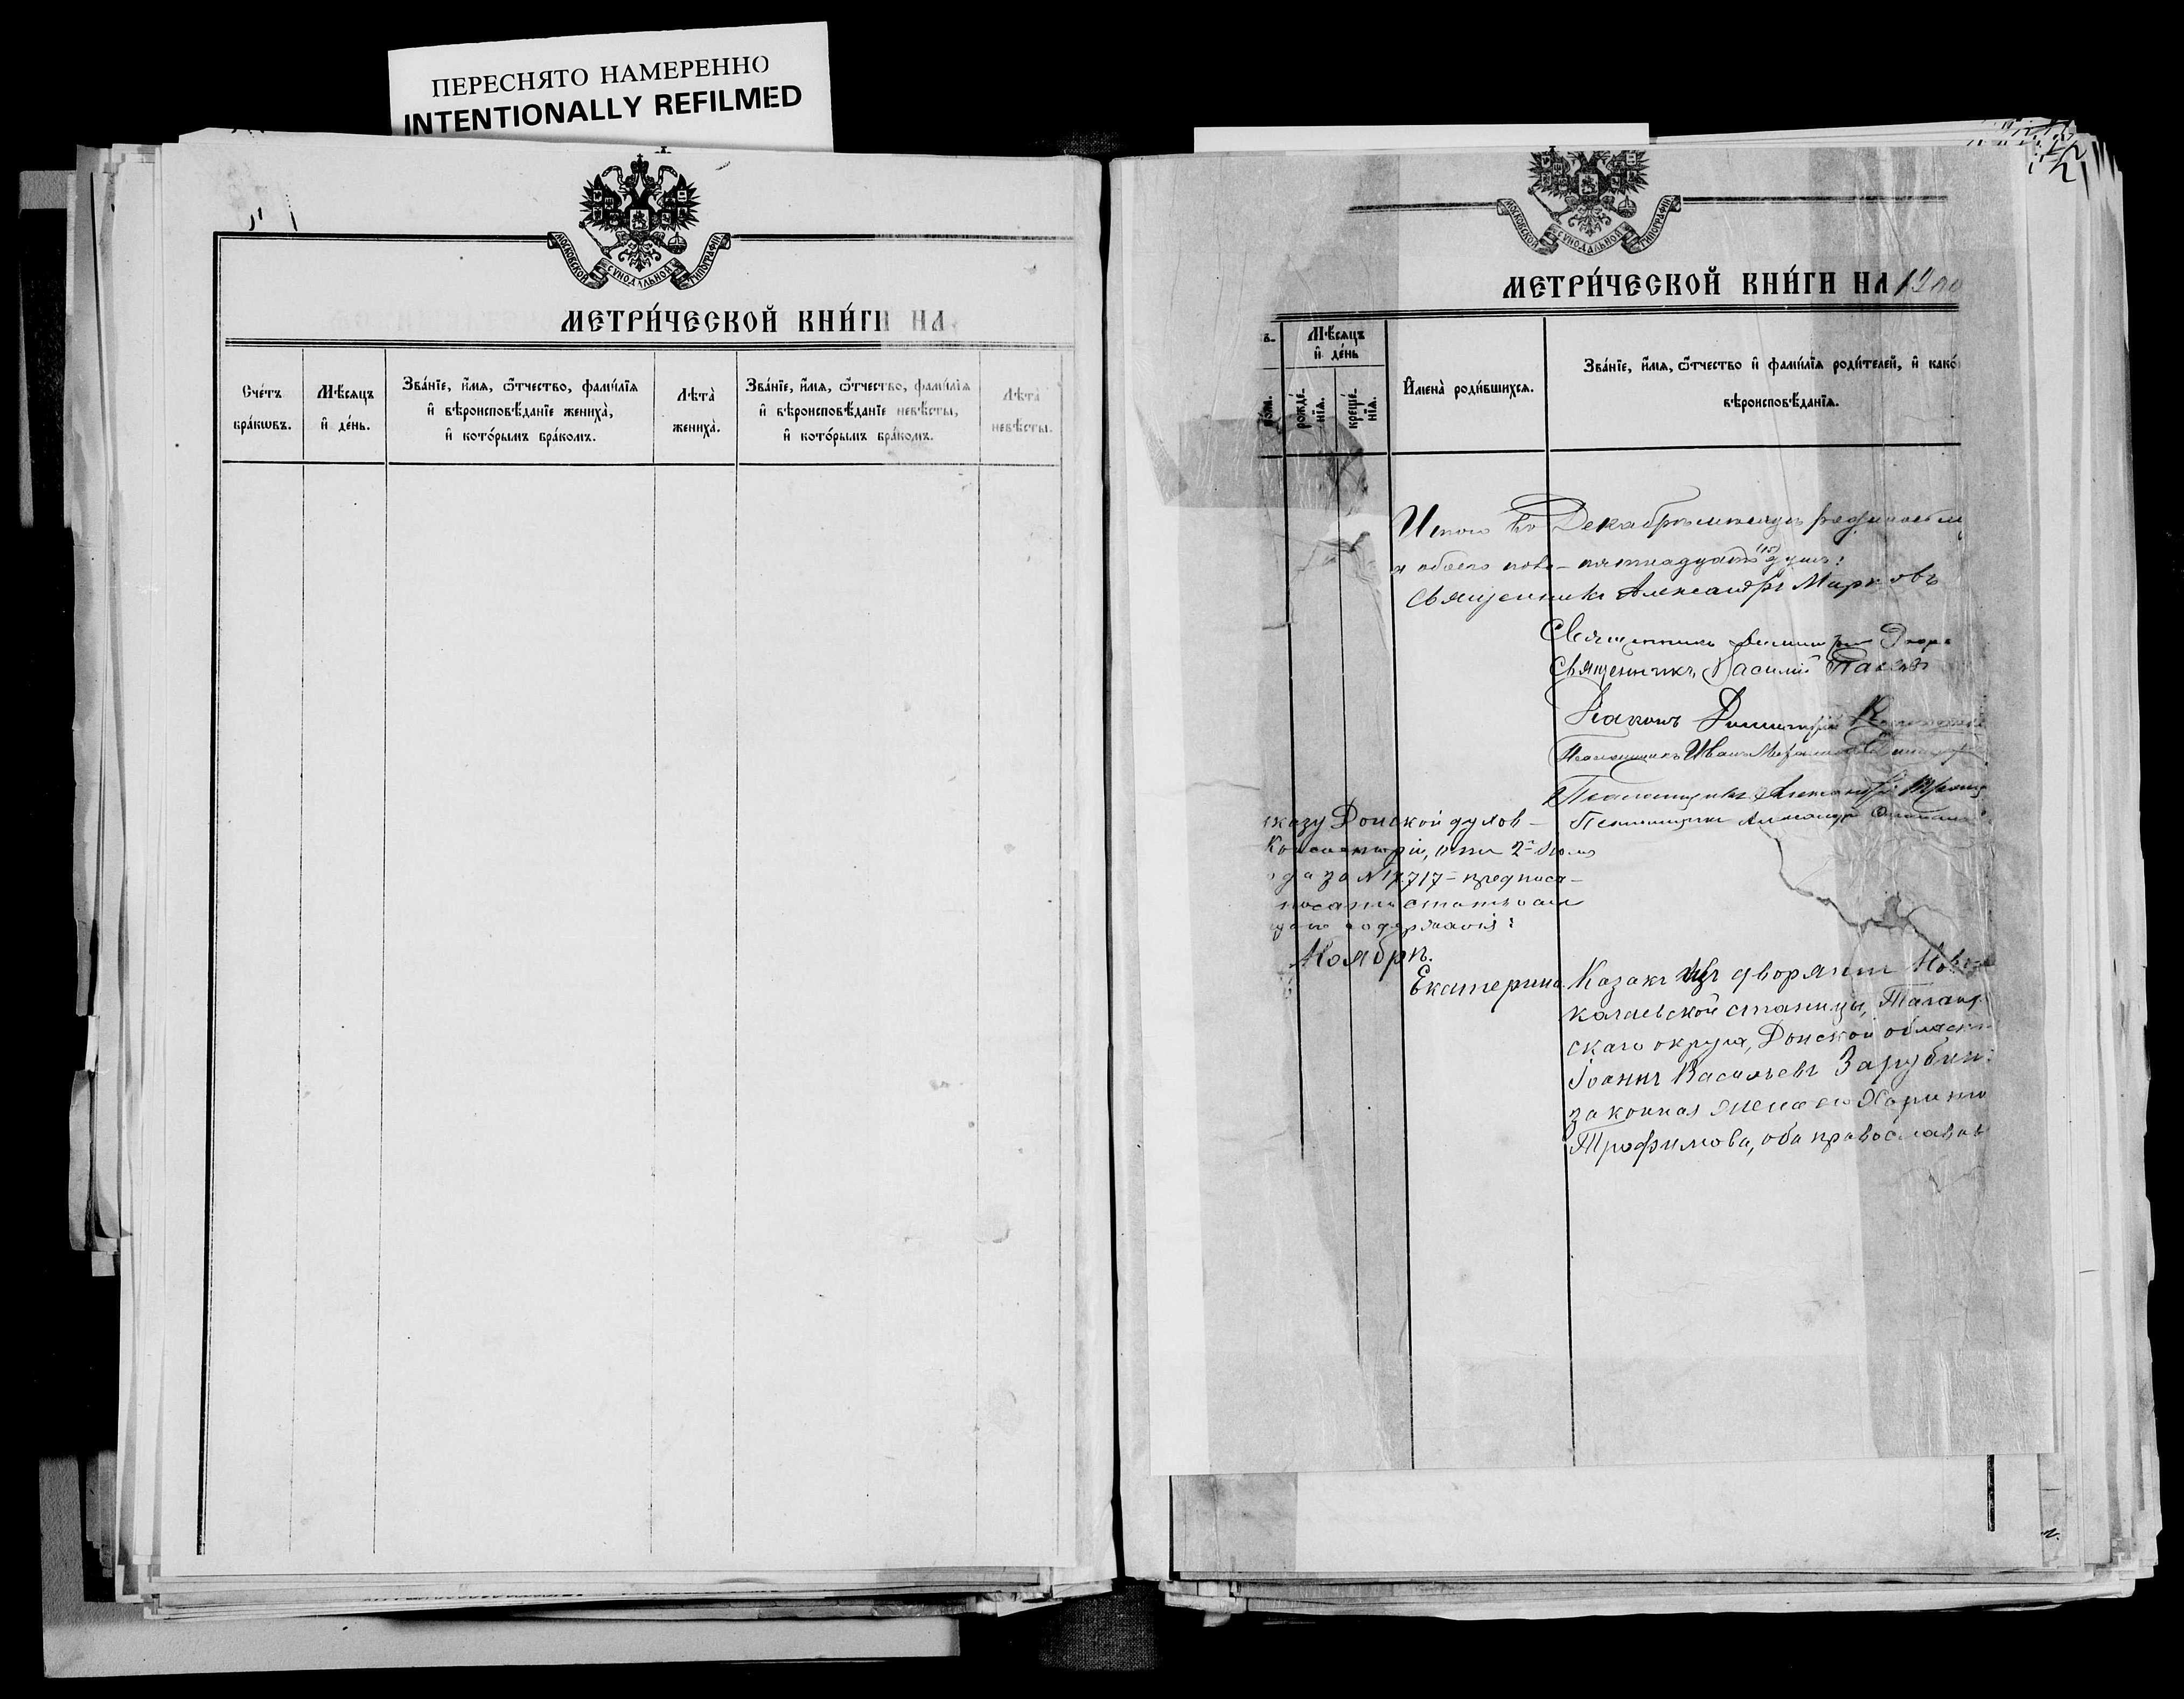 ПЕРЕСНЯТО НАМЕРЕННО
INTENTIONALLY REFILMED
МОСКОВСКОЙ СѴНОДАЛЬНОЙ ТИПОГРАФІИ
МЕТРИ́ЧЕСКОЙ КНИ́ГИ НА
Сче́тъ бра́кѡвъ.
Мѣ́сяцъ и҆ де́нь.
Зва́нїе, и҆́мя, ѻ҆́тчество, фами́лїя
и҆ вѣроисповѣ́данїе жениха̀,
и҆ кото́рымъ бра́комъ.
Лѣта̀ жениха̀.
Зва́нїе, и҆́мя, ѻ҆́тчество, фами́лїя
и҆ вѣроисповѣ́данїе невѣ́сты,
и҆ кото́рымъ бра́комъ.
Лѣта̀ невѣ́сты.
МОСКОВСКОЙ СѴНОДАЛЬНОЙ ТИПОГРАФІИ
МЕТРИ́ЧЕСКОЙ КНИ́ГИ НА 1900
Мѣ́сяцъ и҆ де́нь
рожде́-нїя.
креще́-нїя.
И҆мена̀ роди́вшихся.
Зва́нїе, и҆́мя, ѻ҆́тчество и҆ фами́лїя роди́телей, и҆ како́
вѣроисповѣ́данїя.
Итого въ Декабрѣ мѣсяцѣ
обоего пола – пятнадцать (15) душъ:
Священникъ Александръ Марковъ
Священникъ
Священникъ Василій
Діаконъ Димитрій
Псаломщикъ Иванъ
Псаломщикъ Александръ
Псаломщикъ Александръ
казу Донской духов–
Консисторіи, отъ 2 Іюля
ода за № 17717 – предписа–
писать статью слѣ
содержанія:
Ноябрь.
Екатерина.
Казакъ изъ дворянъ Ново
калаевской станицы, Таганр
скаго округа, Донской области
Іоаннъ Васильевъ Зарубин
законная жена его Харити
Трофимова, оба православн